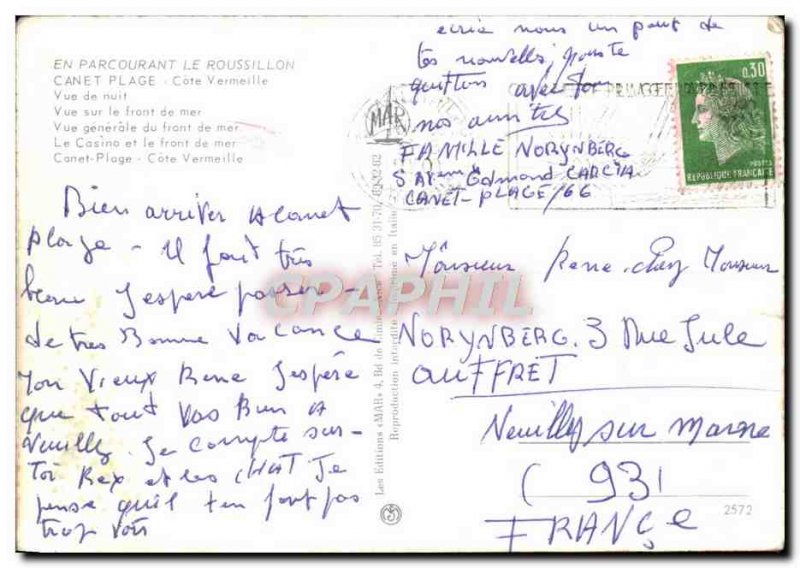 EN PARCOURANT LE ROUSSILLON
CANET PLAGE - Côte Vermeille
Vue de nuit
Vue sur le front de mer
Vue générale du front de mer
Le Casino et le front de mer
Canet-Plage - Côte Vermeille
Bien arriver a Canet
plage - Il fait très
beau J'espère passer
de tres Bonne Vacance
Mon Vieux Rene J'espère
que tout vas Bien a
Neuilly. Je compte sur
toi Rex et les CHAT Je
pense qu'il t'en font pas
trop voir
écrie nous un peut de
tes nouvelles, je
quitton avec
nos amités
FAMILLE NORYNBERG
5 Av Edmond GARCIA
CANET-PLAGE/66
MAR
0,30
POSTES
REPUBLIQUE FRANÇAISE
Les Editions «MAR» 4, Bd de
Reproduction interdite
Monsieur Rene chez Monsieur
NORYNBERG. 3 Rue Jule
AUFFRET
Neuilly sur Marne
(93)
FRANÇE
2572
CPAPHIL